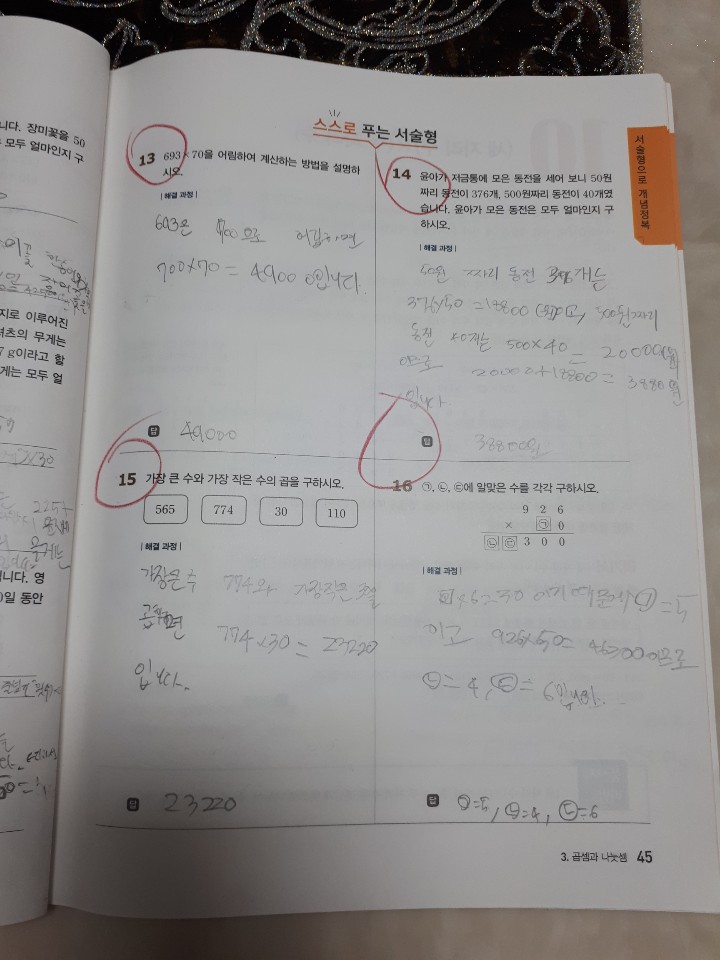 니다. 장미꽃을 50
모두 얼마인지 구
지로 이루어진
셔츠의 무게는
7 g이라고 할
게는 모두 얼
니다. 영
0일 동안
스스로 푸는 서술형
서술형으로 개념정복
13 693×70을 어림하여 계산하는 방법을 설명하
시오.
| 해결 과정 |
693은 700으로 어림하면
700×70=49000입니다.
답 49000
14 윤아가 저금통에 모은 동전을 세어 보니 50원
짜리 동전이 376개, 500원짜리 동전이 40개였
습니다. 윤아가 모은 동전은 모두 얼마인지 구
하시오.
| 해결 과정 |
50원 짜리 동전 376개는
376×50=18800(원)이고, 500원짜리
동전 40개는 500×40=20000(원)
이므로 20000+18800=38800원
입니다
답 38800원
15 가장 큰 수와 가장 작은 수의 곱을 구하시오.
565 774 30 110
| 해결 과정 |
가장큰수 774와 가장작은 30을
곱하면 774×30=23220
입니다.
답 23220
16 ㉠, ㉡, ㉢에 알맞은 수를 각각 구하시오.
9 2 6
× ㉠ 0
㉡ ㉢ 3 0 0
| 해결 과정 |
×6=30 이기 때문에 ㉠=5
이고 926×50=46300이므로
㉡=4, ㉢=6입니다.
답 ㉠=5, ㉡=4, ㉢=6
3. 곱셈과 나눗셈 45